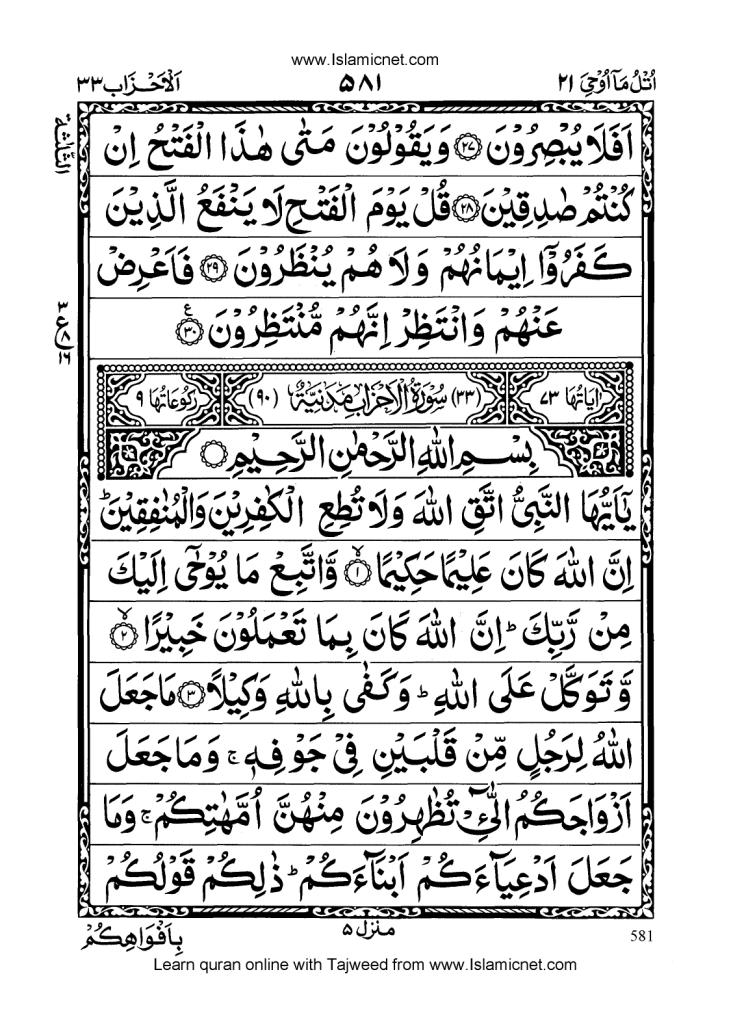 www.Islamicnet.com
اُتْلُ مَاۤ اُوْحِیَ ۲۱
۵۸۱
اَلْاَحْزَاب ۳۳
اَفَلَا یُبْصِرُوْنَ ۝۲۷ وَیَقُوْلُوْنَ مَتٰی هٰذَا الْفَتْحُ اِنْ
كُنْتُمْ صٰدِقِیْنَ ۝۲۸ قُلْ یَوْمَ الْفَتْحِ لَا یَنْفَعُ الَّذِیْنَ
كَفَرُوْۤا اِیْمَانُهُمْ وَلَا هُمْ یُنْظَرُوْنَ ۝۲۹ فَاَعْرِضْ
عَنْهُمْ وَانْتَظِرْ اِنَّهُمْ مُّنْتَظِرُوْنَ ۝۳۰
اٰیَاتُهَا ۷۳ (۳۳) سُوْرَةُ الْاَحْزَابِ مَدَنِیَّةٌ (۹۰) رُكُوْعَاتُهَا ۹
بِسْمِ اللهِ الرَّحْمٰنِ الرَّحِیْمِ
یٰۤاَیُّهَا النَّبِیُّ اتَّقِ اللهَ وَلَا تُطِعِ الْكٰفِرِیْنَ وَالْمُنٰفِقِیْنَ ؕ
اِنَّ اللهَ كَانَ عَلِیْمًا حَكِیْمًا ۝۱ وَّاتَّبِعْ مَا یُوْحٰۤی اِلَیْكَ
مِنْ رَّبِّكَ ؕ اِنَّ اللهَ كَانَ بِمَا تَعْمَلُوْنَ خَبِیْرًا ۝۲
وَّتَوَكَّلْ عَلَی اللهِ ؕ وَكَفٰی بِاللهِ وَكِیْلًا ۝۳ مَا جَعَلَ
اللهُ لِرَجُلٍ مِّنْ قَلْبَیْنِ فِیْ جَوْفِهٖ ۚ وَمَا جَعَلَ
اَزْوَاجَكُمُ الّٰٓـِٔیْ تُظٰهِرُوْنَ مِنْهُنَّ اُمَّهٰتِكُمْ ۚ وَمَا
جَعَلَ اَدْعِیَآءَكُمْ اَبْنَآءَكُمْ ؕ ذٰلِكُمْ قَوْلُكُمْ
الثلٰثة
۳
ع ۸
۱۶
581
منزل ۵
بِاَفْوَاهِكُمْ
Learn quran online with Tajweed from www.Islamicnet.com